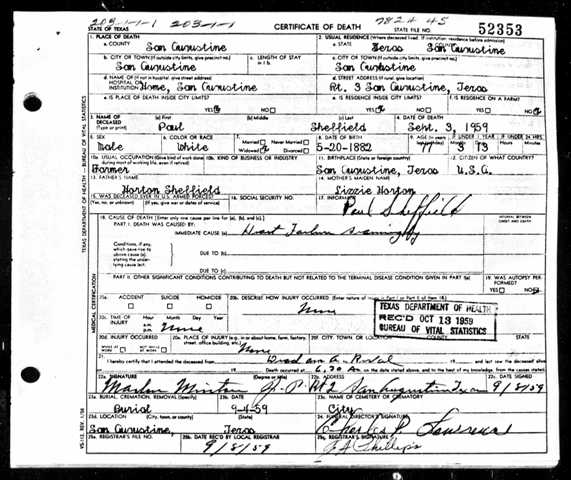 203-1-1 203-1-1 7824 45
STATE OF TEXAS CERTIFICATE OF DEATH STATE FILE NO. 52353
1. PLACE OF DEATH 2. USUAL RESIDENCE (Where deceased lived. If institution: residence before admission)
a. COUNTY San Augustine a. STATE Texas COUNTY San Augustine
b. CITY OR TOWN (If outside city limits, give precinct no.) c. LENGTH OF STAY in 1 b. c. CITY OR TOWN (If outside city limits, give precinct no.)
San Augustine San Augustine
d. NAME OF (If not in hospital, give street address) d. STREET ADDRESS (If rural, give location)
HOSPITAL OR INSTITUTION Home, San Augustine Rt. 3 San Augustine, Texas
e. IS PLACE OF DEATH INSIDE CITY LIMITS? e. IS RESIDENCE INSIDE CITY LIMITS? f. IS RESIDENCE ON A FARM?
YES NO YES NO YES NO
3. NAME OF DECEASED (Type or print) (a) First (b) Middle (c) Last 4. DATE OF DEATH
Paul Sheffield Sept. 3, 1959
5. SEX 6. COLOR OR RACE 7. Married Never Married 8. DATE OF BIRTH 9. AGE IF UNDER 1 YEAR IF UNDER 24 HRS.
Male White Widowed Divorced 5-20-1882 77 3 13
10a. USUAL OCCUPATION (Give kind of work done during most of working life, even if retired) 10b. KIND OF BUSINESS OR INDUSTRY 11. BIRTHPLACE (State or foreign country) 12. CITIZEN OF WHAT COUNTRY?
Farmer San Augustine, Texas U.S.A.
13. FATHER'S NAME 14. MOTHER'S MAIDEN NAME
Horton Sheffield Lizzie Horton
15. WAS DECEASED EVER IN U.S. ARMED FORCES? 16. SOCIAL SECURITY NO. 17. INFORMANT
(Yes, no, or unknown) (If yes, give war or dates of service) Paul Sheffield
18. CAUSE OF DEATH [Enter only one cause per line for (a), (b), and (c).] INTERVAL BETWEEN ONSET AND DEATH
PART I. DEATH WAS CAUSED BY:
IMMEDIATE CAUSE (a) Heart Failure seemingly
Conditions, if any, which gave rise to above cause (a), stating the underlying cause last.
DUE TO (b)
DUE TO (c)
PART II. OTHER SIGNIFICANT CONDITIONS CONTRIBUTING TO DEATH BUT NOT RELATED TO THE TERMINAL DISEASE CONDITION GIVEN IN PART I(a) 19. WAS AUTOPSY PERFORMED?
YES NO
20a. ACCIDENT SUICIDE HOMICIDE 20b. DESCRIBE HOW INJURY OCCURRED (Enter nature of injury in Part I or Part II of item 18.)
None
20c. TIME OF INJURY Hour Month Day Year
a.m. p.m. None
TEXAS DEPARTMENT OF HEALTH
REC'D OCT 13 1959
BUREAU OF VITAL STATISTICS
20d. INJURY OCCURRED 20e. PLACE OF INJURY (e.g., in or about home, farm, factory, street, office building, etc.) 20f. CITY, TOWN, OR LOCATION COUNTY STATE
WHILE AT WORK NOT WHILE AT WORK None
21. I hereby certify that I attended the deceased from Dead on Arrival and last saw the deceased alive
Death occurred at 6.30 Am on the date stated above, and to the best of my knowledge, from the causes stated.
22a. SIGNATURE (Degree or title) 22b. ADDRESS 22c. DATE SIGNED
J.P. Rt 2 San Augustine Texas 9/8/59
23a. BURIAL, CREMATION, REMOVAL (Specify) 23b. DATE 23c. NAME OF CEMETERY OR CREMATORY
Burial 9-4-59 City
23d. LOCATION (City, town, or county) (State) 24. FUNERAL DIRECTOR'S SIGNATURE
San Augustine, Texas Charles P. Lawrence
25a. REGISTRAR'S FILE NO. 25b. DATE REC'D BY LOCAL REGISTRAR 25c. REGISTRAR'S SIGNATURE
9/8/59 Phillips
TEXAS DEPARTMENT OF HEALTH - BUREAU OF VITAL STATISTICS
MEDICAL CERTIFICATION